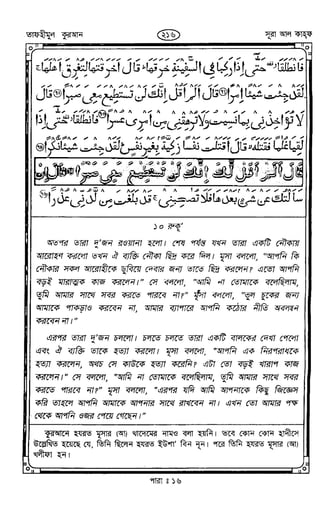 তাফহীমুল কুরআন
২১৬
সূরা আল কাহফ
فَانْطَلَقَا حَتّٰى اِذَا رَكِبَا فِى السَّفِيْنَةِ خَرَقَهَا قَالَ اَخَرَقْتَهَا لِتُغْرِقَ اَهْلَهَا
لَقَدْ جِئْتَ شَيْئًا اِمْرًا قَالَ اَلَمْ اَقُلْ اِنَّكَ لَنْ تَسْتَطِيْعَ مَعِىَ صَبْرًا قَالَ
لَا تُؤَاخِذْنِىْ بِمَا نَسِيْتُ وَلَا تُرْهِقْنِىْ مِنْ اَمْرِىْ عُسْرًا فَانْطَلَقَا حَتّٰى اِذَا
لَقِيَا غُلٰمًا فَقَتَلَهٗ قَالَ اَقَتَلْتَ نَفْسًا زَكِيَّةً بِغَيْرِ نَفْسٍ لَقَدْ جِئْتَ شَيْئًا نُّكْرًا
قَالَ اَلَمْ اَقُلْ لَّكَ اِنَّكَ لَنْ تَسْتَطِيْعَ مَعِىَ صَبْرًا قَالَ اِنْ
سَاَلْتُكَ عَنْ شَىْءٍ بَعْدَهَا فَلَا تُصٰحِبْنِىْ قَدْ بَلَغْتَ مِنْ لَّدُنِّىْ عُذْرًا
১০ রুকূ'
অতপর তারা দু'জন রওয়ানা হলো। শেষ পর্যন্ত যখন তারা একটি নৌকায়
আরোহণ করলো তখন ঐ ব্যক্তি নৌকা ছিদ্র করে দিল। মূসা বললো, "আপনি কি
নৌকার সকল আরোহীকে ডুবিয়ে দেবার জন্য তাতে ছিদ্র করলেন? এতো আপনি
বড়ই মারাত্মক কাজ করলেন।" সে বললো, "আমি না তোমাকে বলেছিলাম,
তুমি আমার সাথে সবর করতে পারবে না?" মূসা বললো, "ভুল চুকের জন্য
আমাকে পাকড়াও করবেন না, আমার ব্যাপারে আপনি কঠোর নীতি অবলম্বন
করবেন না।"
এরপর তারা দু'জন চললো। চলতে চলতে তারা একটি বালকের দেখা পেলো
এবং ঐ ব্যক্তি তাকে হত্যা করলো। মূসা বললো, "আপনি এক নিরপরাধকে
হত্যা করলেন, অথচ সে কাউকে হত্যা করেনি? এটা তো বড়ই খারাপ কাজ
করলেন।" সে বললো, "আমি না তোমাকে বলেছিলাম, তুমি আমার সাথে সবর
করতে পারবে না?" মূসা বললো, "এরপর যদি আমি আপনাকে কিছু জিজ্ঞেস
করি তাহলে আপনি আমাকে আপনার সাথে রাখবেন না। এখন তো আমার পক্ষ
থেকে আপনি ওজর পেয়ে গেছেন।"
কুরআনে হযরত মূসার (আ) খাদেমের নামও বলা হয়নি। তবে কোন কোন হাদীসে
উল্লেখিত হয়েছে যে, তিনি ছিলেন হযরত ইউশা' বিন নূন। পরে তিনি হযরত মূসার (আ)
খলীফা হন।
পারা : ১৬